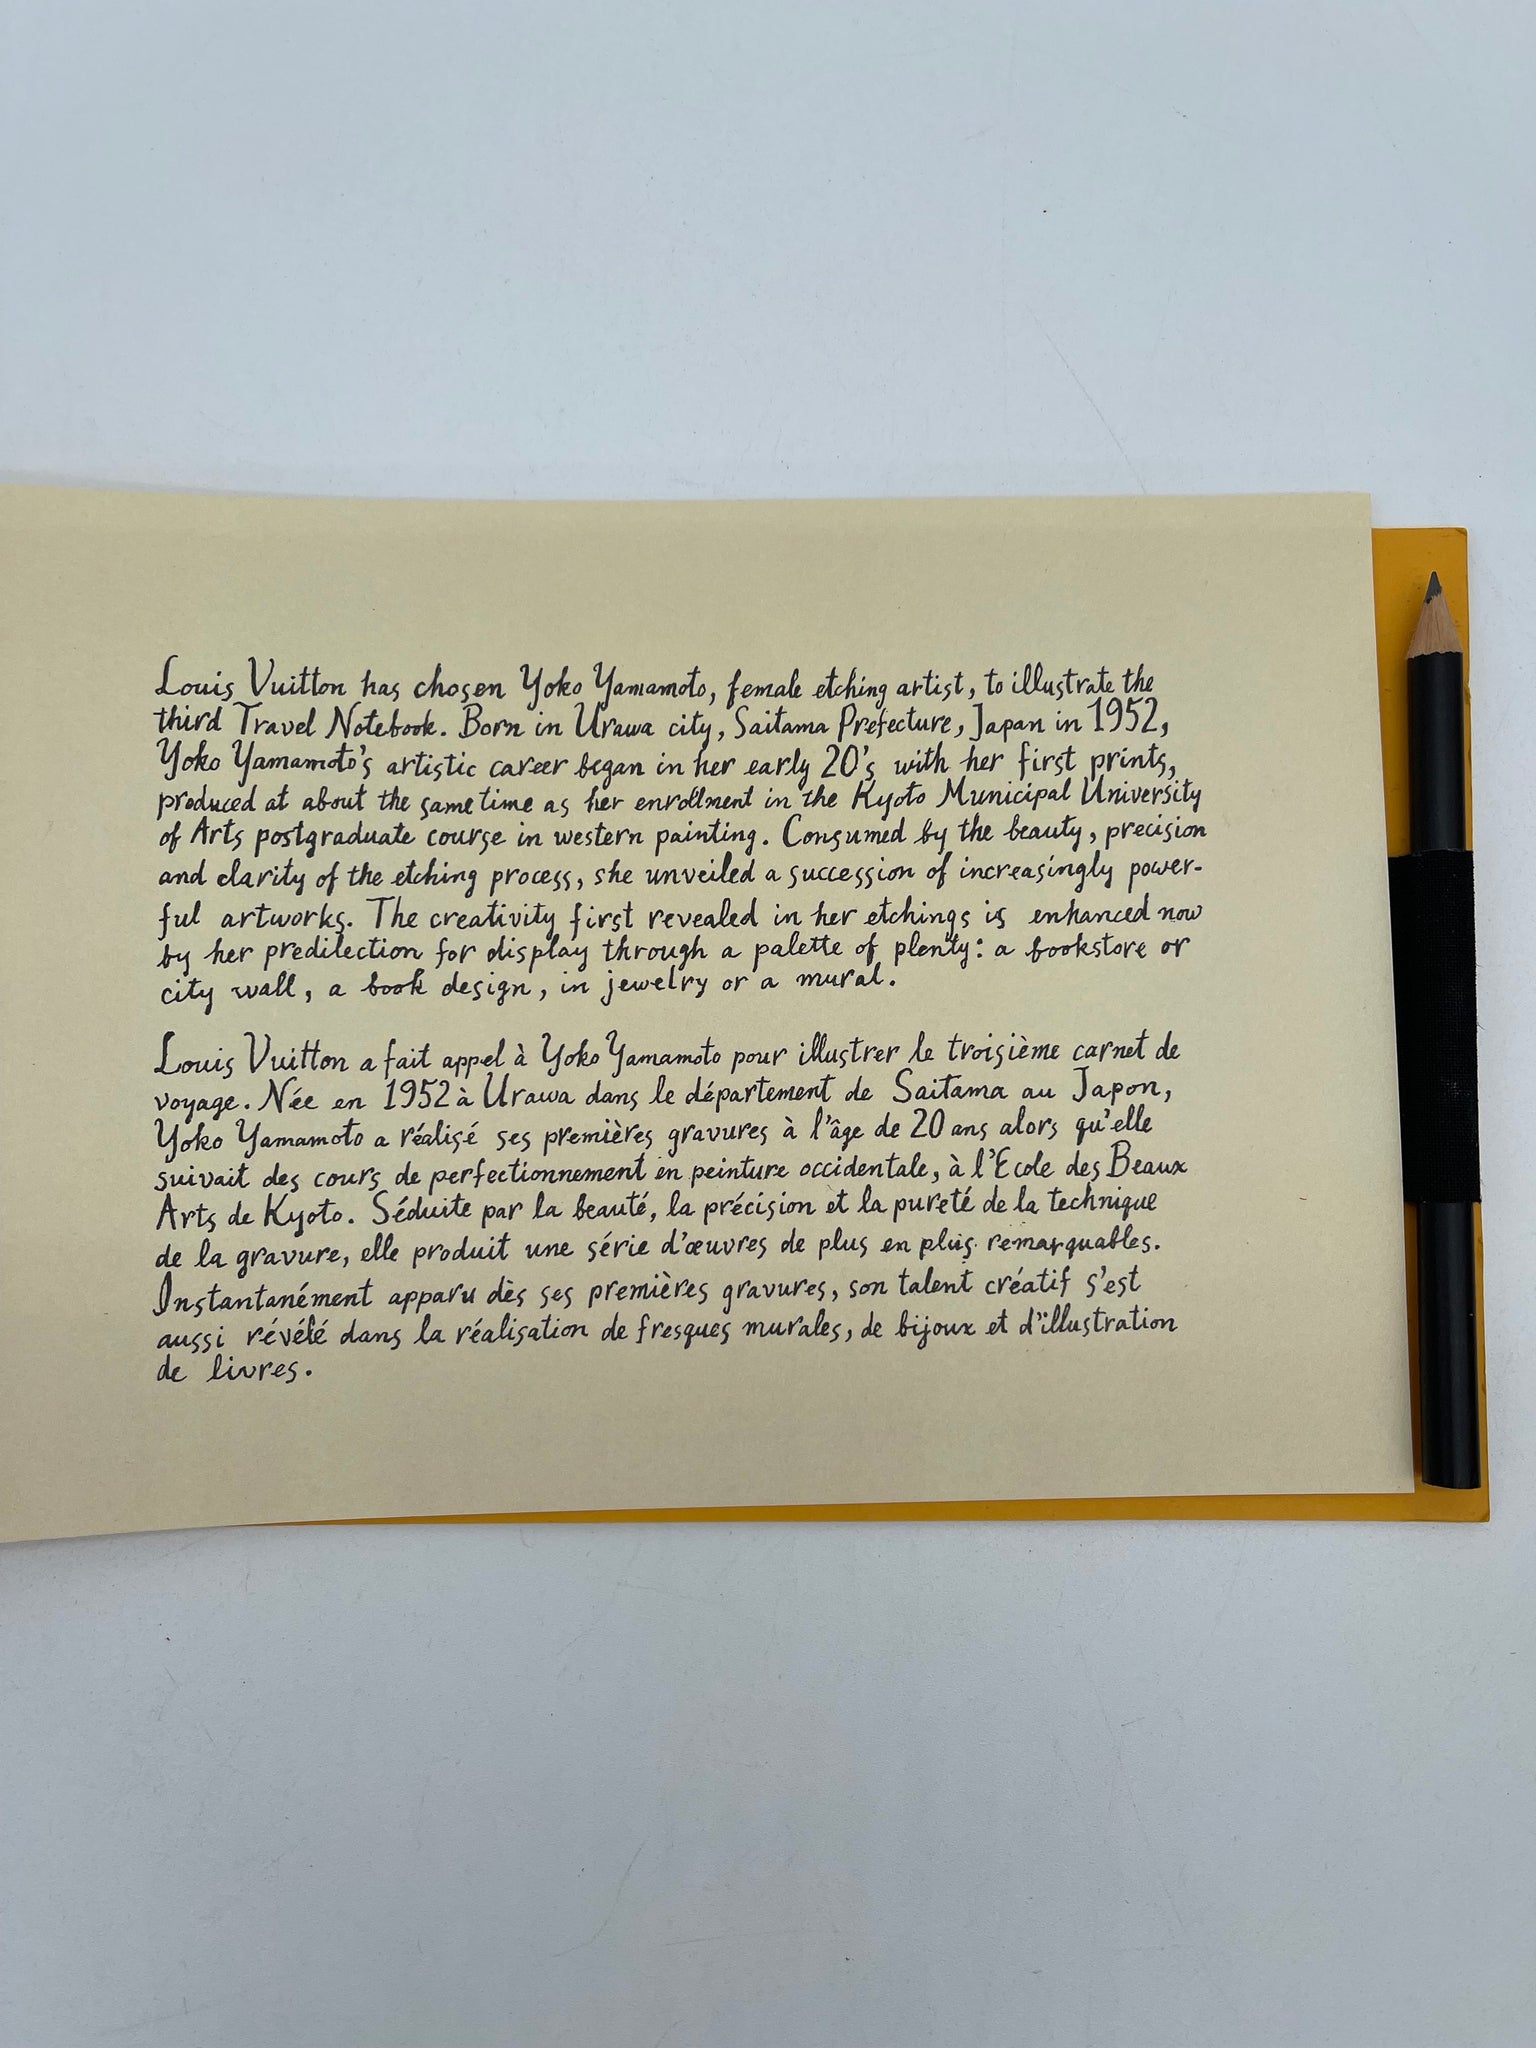 Louis Vuitton has chosen Yoko Yamamoto, female etching artist, to illustrate the
third Travel Notebook. Born in Urawa city, Saitama Prefecture, Japan in 1952,
Yoko Yamamoto's artistic career began in her early 20's with her first prints,
produced at about the same time as her enrollment in the Kyoto Municipal University
of Arts postgraduate course in western painting. Consumed by the beauty, precision
and clarity of the etching process, she unveiled a succession of increasingly power-
ful artworks. The creativity first revealed in her etchings is enhanced now
by her predilection for display through a palette of plenty: a bookstore or
city wall, a book design, in jewelry or a mural.
Louis Vuitton a fait appel à Yoko Yamamoto pour illustrer le troisième carnet de
voyage. Née en 1952 à Urawa dans le département de Saitama au Japon,
Yoko Yamamoto a réalisé ses premières gravures à l'âge de 20 ans alors qu'elle
suivait des cours de perfectionnement en peinture occidentale, à l'Ecole des Beaux
Arts de Kyoto. Séduite par la beauté, la précision et la pureté de la technique
de la gravure, elle produit une série d'œuvres de plus en plus remarquables.
Instantanément apparu dès ses premières gravures, son talent créatif s'est
aussi révélé dans la réalisation de fresques murales, de bijoux et d'illustration
de livres.